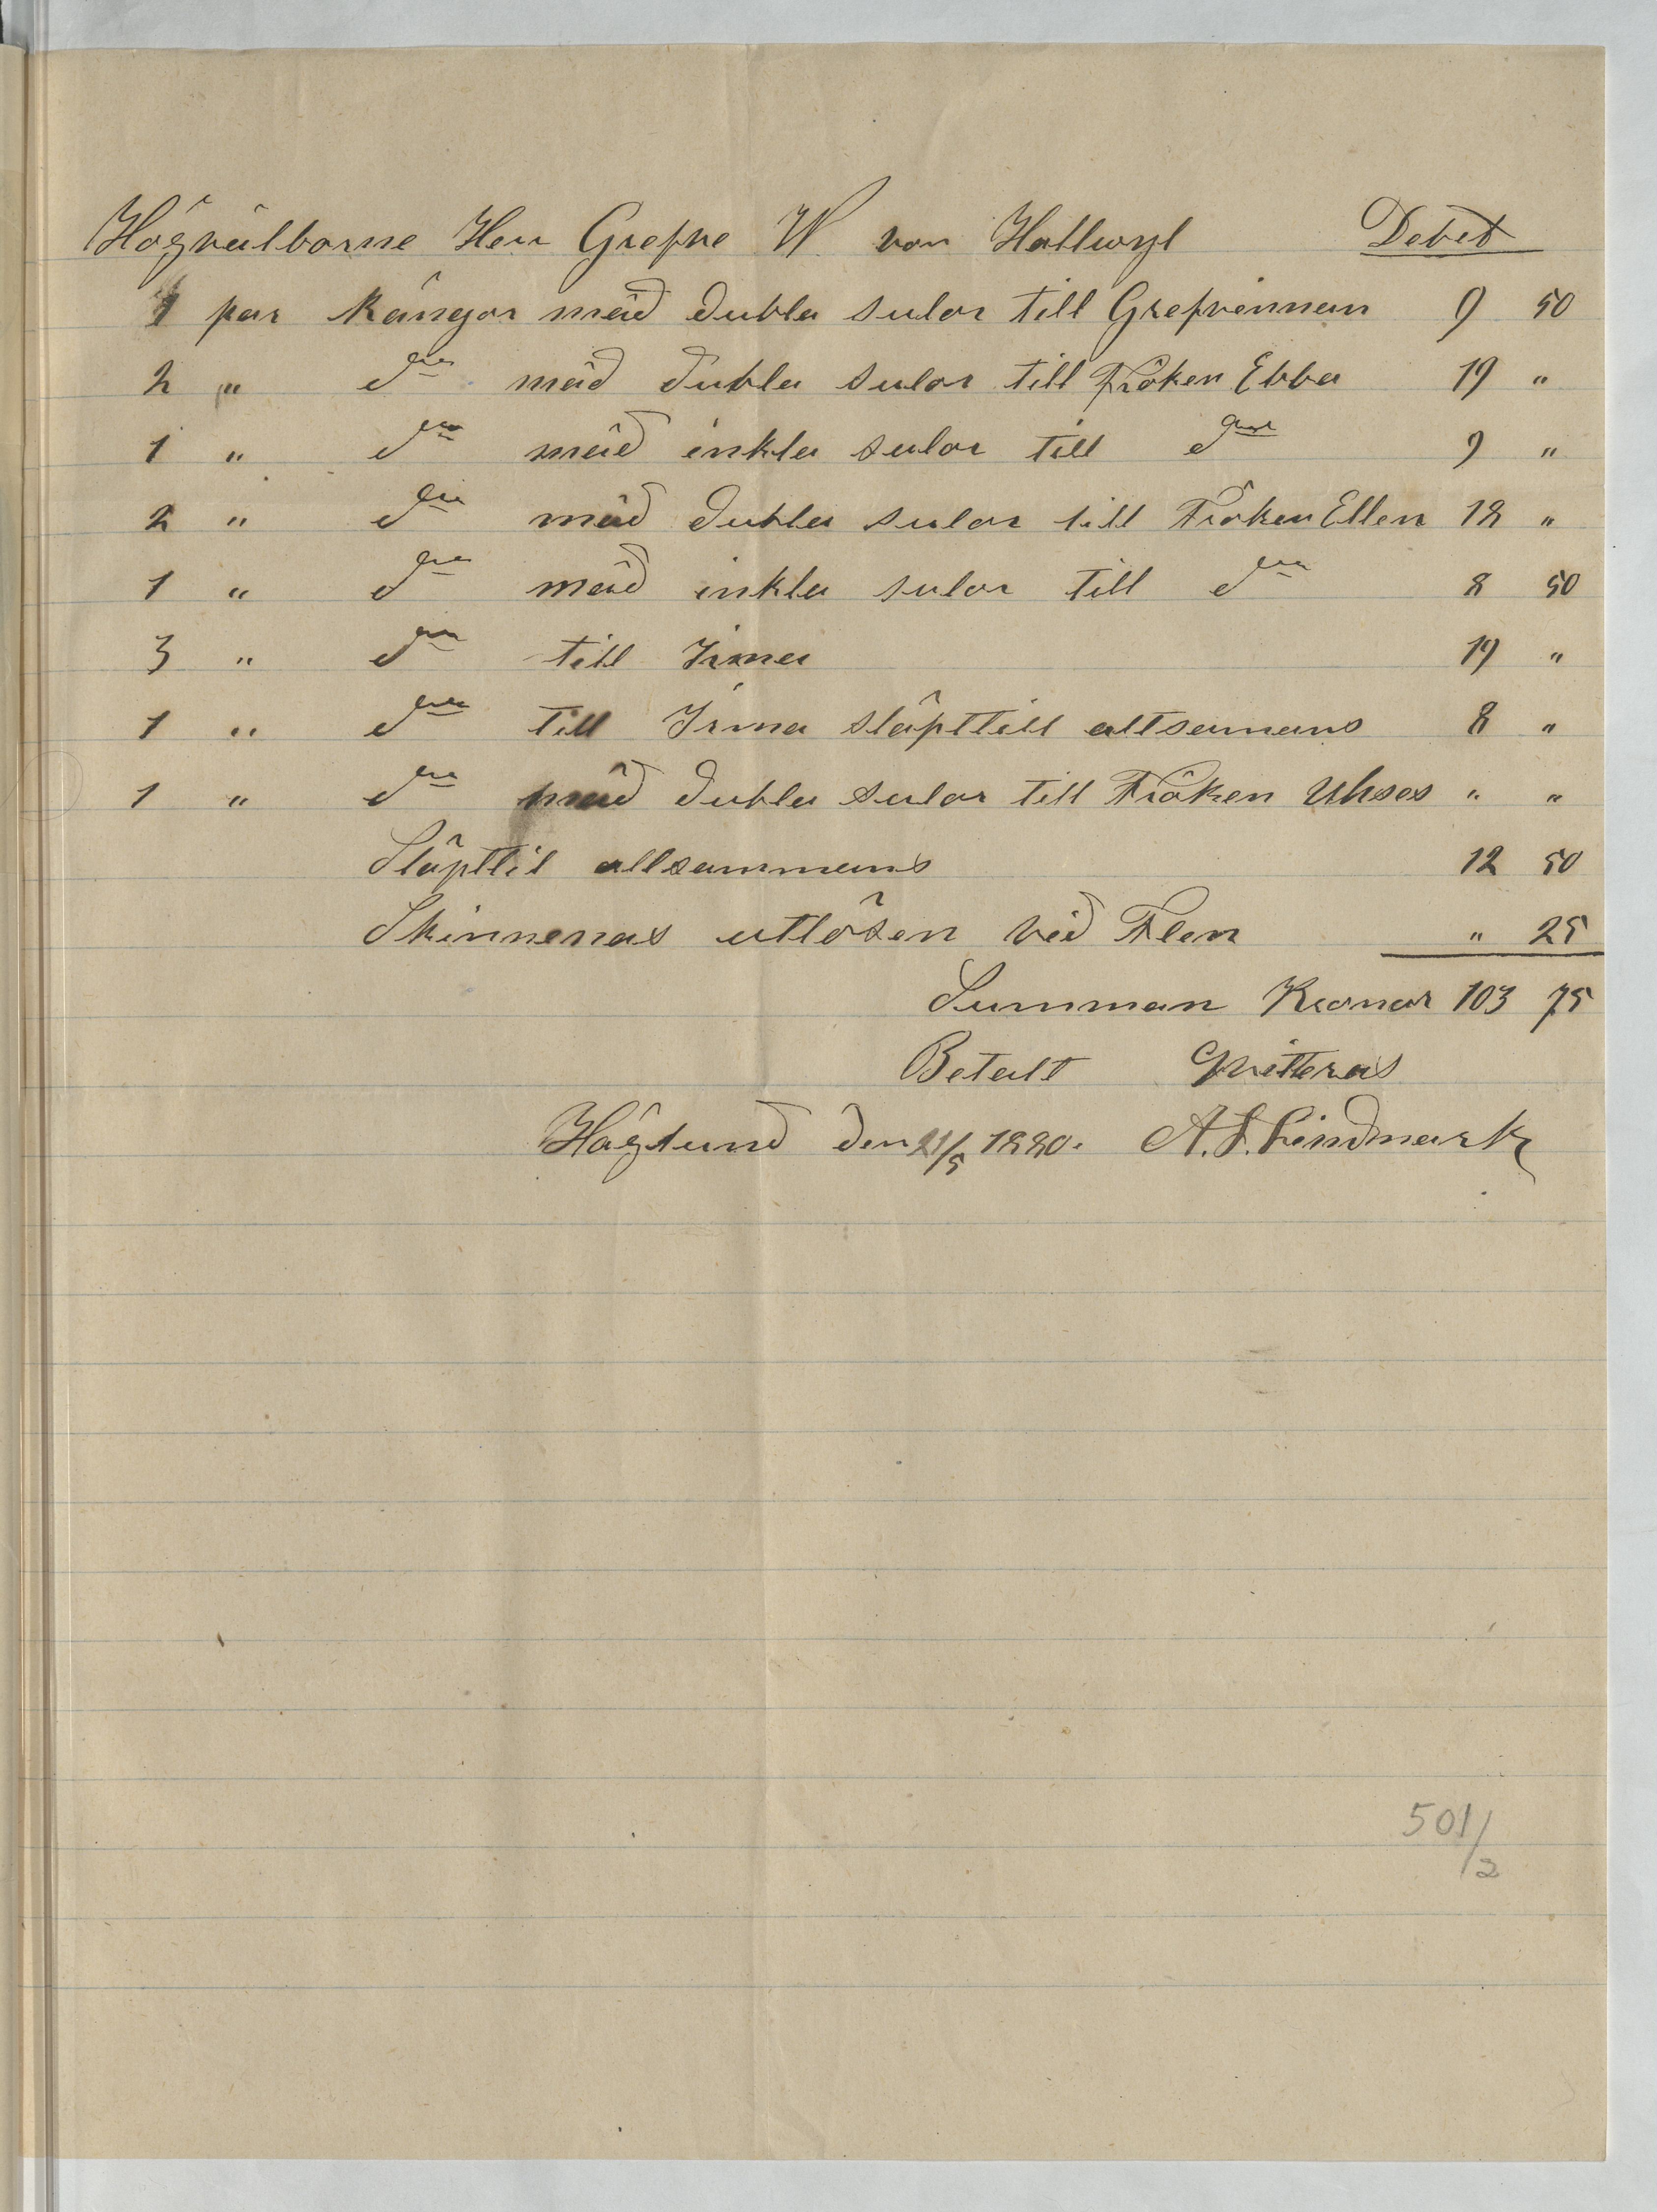 Högvälborne Herr Grefve W. von Hallwyl Debet
1 par Kängor mäd dubla sulor till Grefvinnan 9 50
2 " do mäd dubla sulor till Fröken Ebba 19 "
1 " do mäd inkla sulor till do 9 "
2 " do mäd dubla sulor till Fröken Ellen 18 "
1 " do mäd inkla sulor till do 8 50
3 " do till Irma 19 "
1 " do till Irma släpttill altsamans 8 "
1 " do mäd dubla sulor till Fröken Uhses " "
Släpttil allsammans 12 50
Skinnenas utlösen vid Flen " 25
Summan Kronor 103 75
Betalt Qvitteras
Höglund den 21/5 1880. A. F. Lindmark
501/2